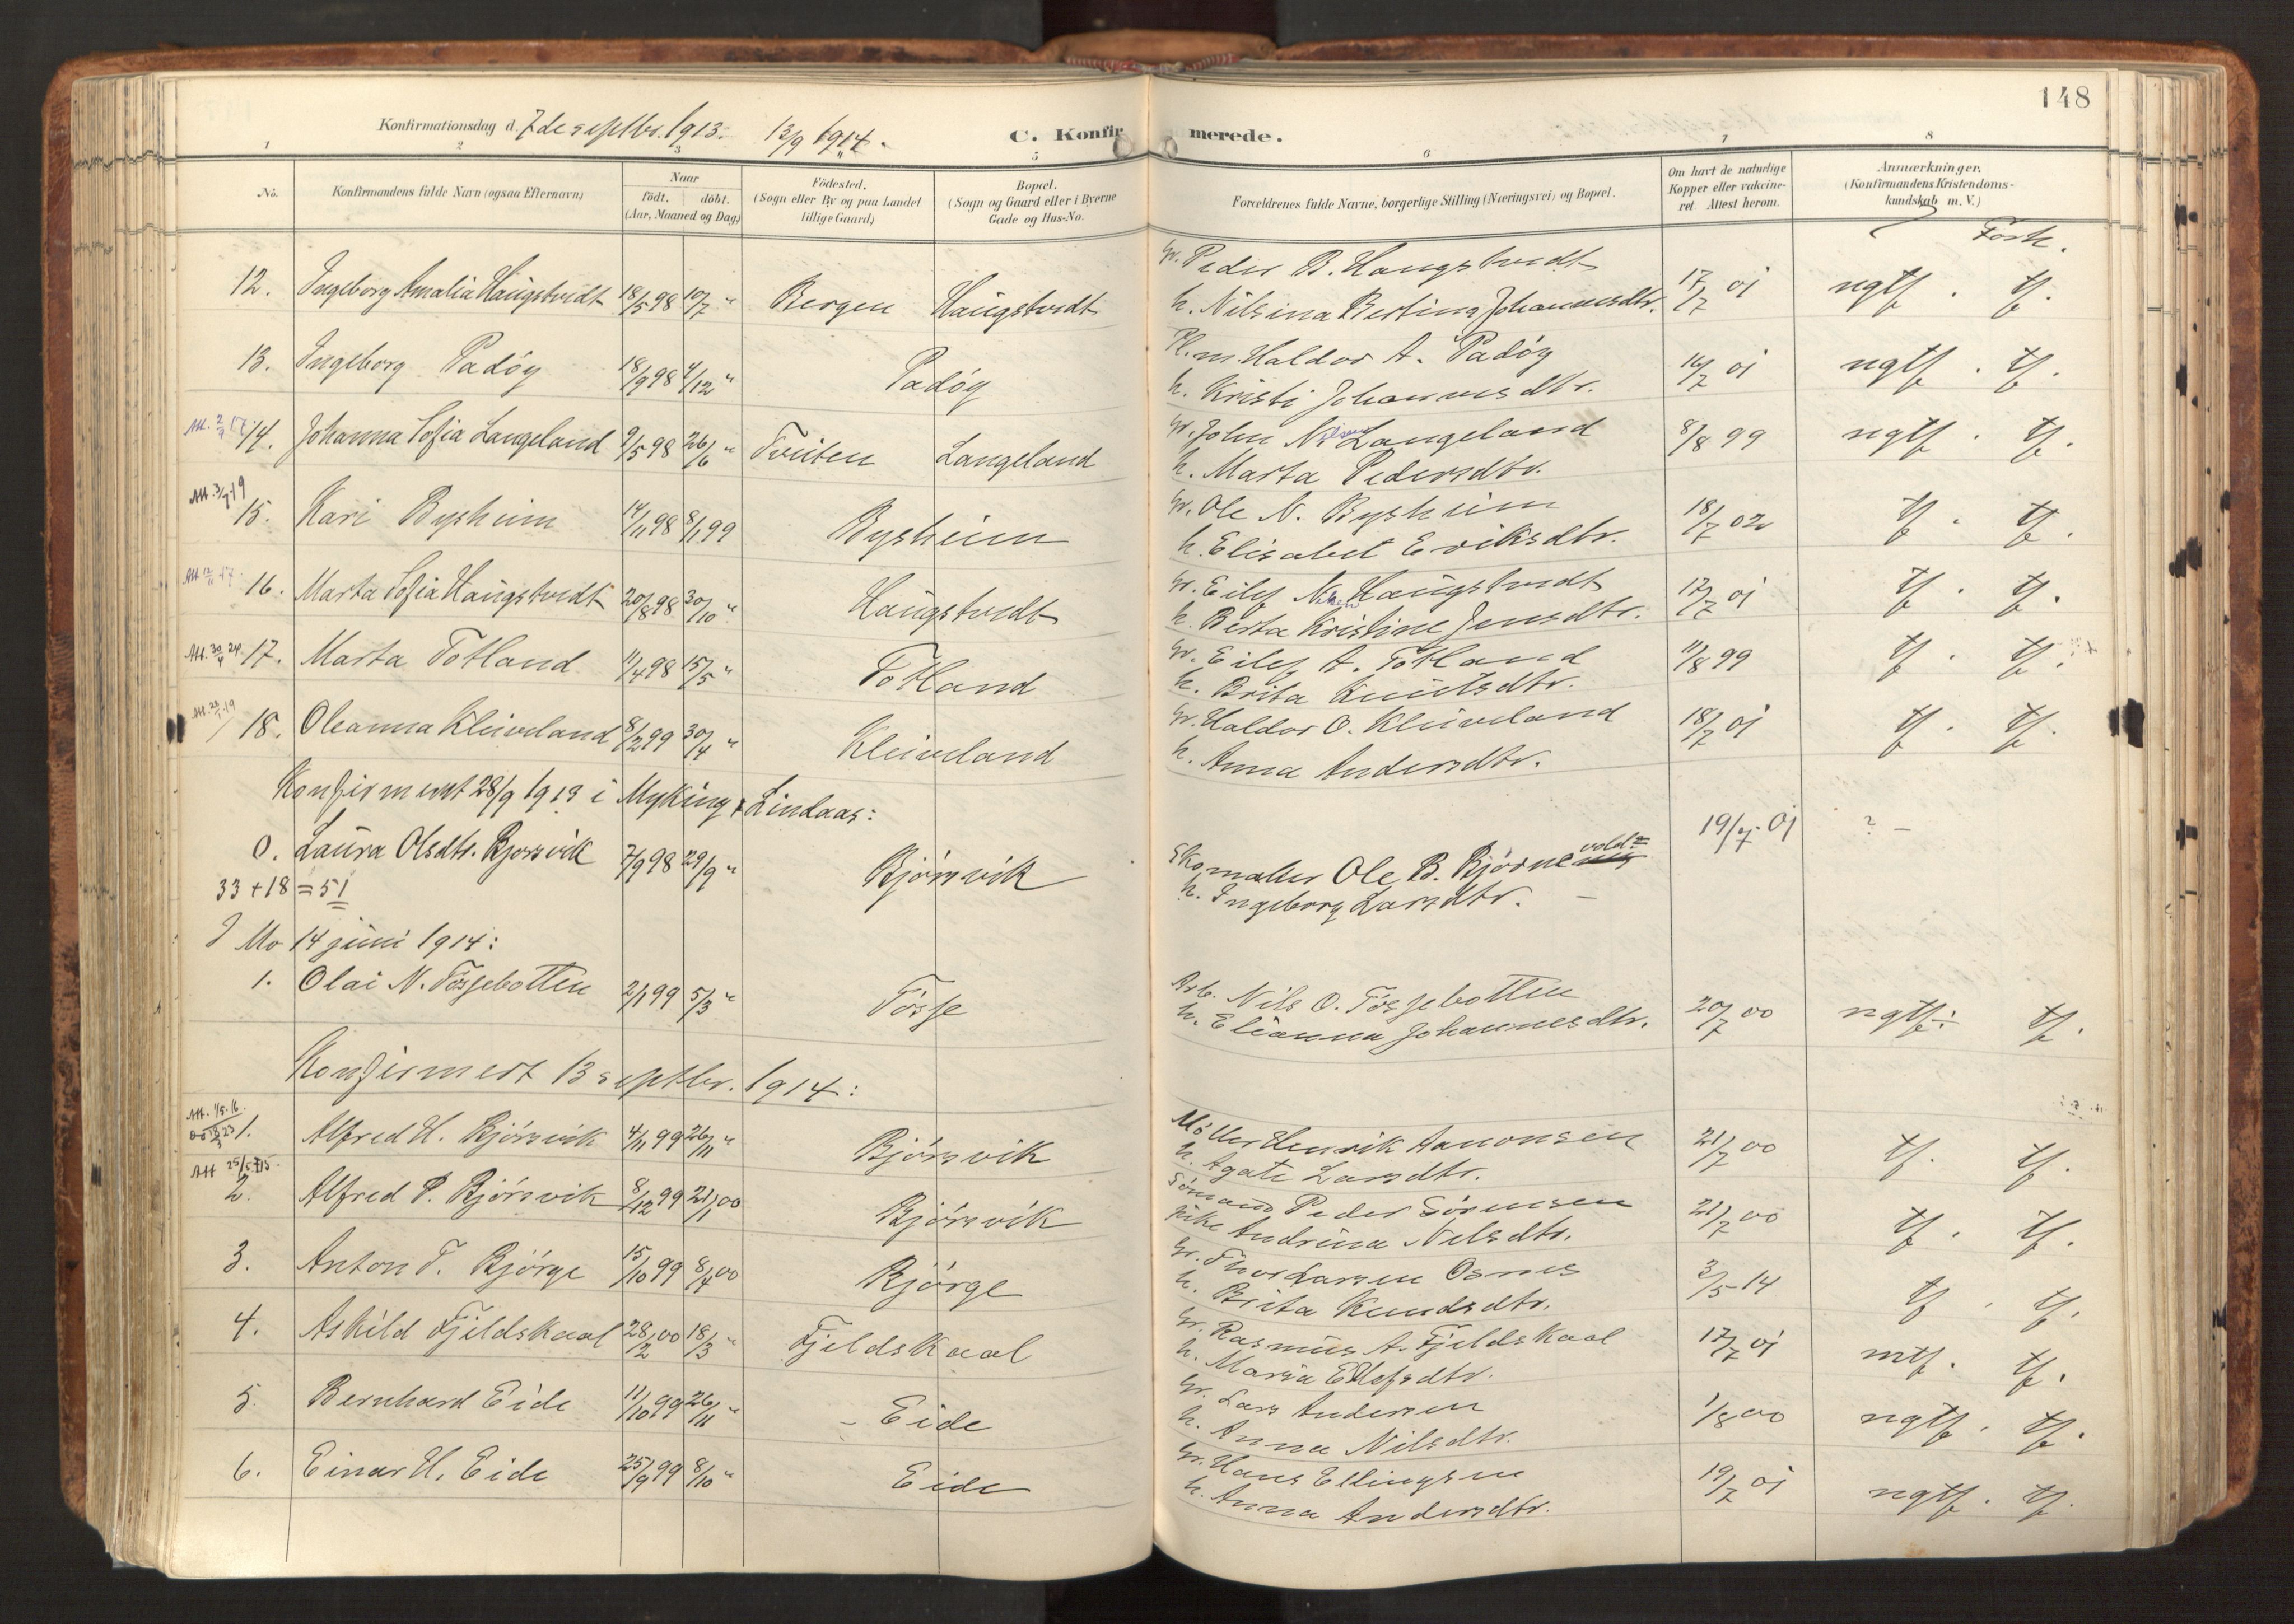 148
Konfirmationsdag d. 7de septbr. 1913. 13/9 1914.
C. Konfirmerede.
1 2 3 4 5 6 7 8
No. Konfirmandens fulde Navn (ogsaa Efternavn) Naar født. døbt. (Aar, Maaned og Dag) Fødested. (Sogn eller By og paa Landet tillige Gaard) Bopæl. (Sogn og Gaard eller i Byerne Gade og Hus-No. Forældrenes fulde Navne, borgerlige Stilling (Næringsvei) og Bopæl. Om havt de naturlige Kopper eller vakcineret. Attest herom. Anmærkninger. (Konfirmandens Kristendomskundskab m. V.)
Forh.
12. Ingeborg Amalia Haugstvedt 18/5 98 10/7 " Bergen Haugstvedt Gr. Peder B. Haugstvedt 17/7 01 ngtf. tf.
h. Nilsina Bertina Johannesdtr.
13. Ingeborg Padøy 18/9 98 4/12 " Padøy Pl.m. Haldor A. Padøy 16/7 01 ngtf. tf.
h. Kristi Johannesdtr.
14. Johanna Sofia Langeland 9/5 98 26/6 " Tveiten Langeland Gr. John Nilsen Langeland 8/8 99 ngtf. tf.
h. Marta Pedersdtr.
Att. 3/9 19
15. Kari Bysheim 14/11 98 8/1 99 Bysheim Gr. Ole N. Bysheim 18/7 02 tf. tf.
h. Elisabet Eriksdtr.
16. Marta Sofia Haugstvedt 20/8 98 30/10 " Haugstvedt Gr. Eilef Haugstvedt 17/7 01 tf. tf.
h. Berta Kristine Jensdtr.
Att. 30/4 24 17. Marta Totland 11/4 98 15/5 " Totland Gr. Eilef A. Totland 11/8 99 tf. tf.
h. Brita Knutsdtr.
18. Oleanna Kleiveland 8/2 99 30/4 " Kleiveland Gr. Haldor O. Kleiveland 18/7 01 tf. tf.
h. Anna Andersdtr.
Konfirmert 28/9 1913 i Myking, Lindaas:
0. Laura Olsdtr. Bjorsvik 7/9 98 29/9 " Bjørsvik Skomaker Ole B. Bjørnevold 19/7 01 ? —
h. Ingeborg Larsdtr. —
33 + 18 = 51
I Mo 14 juni 1914:
1. Olai N. Fossebotten 2/1 99 5/3 " Fosse Arb. Nils O. Fossebotten 20/7 00 ngtf÷ tf.
h. Elianna Johannesdtr.
Konfirmert 13 septbr. 1914:
Att. 1/5 16
1. Alfred H. Bjørsvik 4/11 99 26/11 " Bjørsvik Møller Henrik Aanonsen 21/7 00 tf. tf.
h. Agate Larsdtr.
Att 25/5 15
2. Alfred P. Bjørsvik 8/12 99 21/1 00 Bjørsvik Sømand Peder Sørensen 21/7 00 tf. tf.
Andrina Nilsdtr.
3. Anton T. Bjørge 15/10 99 8/4 00 Bjørge Gr. Thor Larsen Osnes 3/5 14 tf. tf.
h. Brita Knudsdtr.
4. Askild Fjeldskaal 28/2 00 18/3 " Fjeldskaal Gr. Rasmus A. Fjeldskaal 17/7 01 mtf. tf.
h. Maria Ellefsdtr.
5. Bernhard Eide 11/10 99 26/11 " – Eide Gr. Lars Andersen 1/8 00 ngtf. tf.
h. Anna Nilsdtr.
6. Einar H. Eide 25/9 99 8/10 " Eide Gr. Hans Ellingsen 19/7 01 ngtf. tf.
h. Anna Andersdtr.